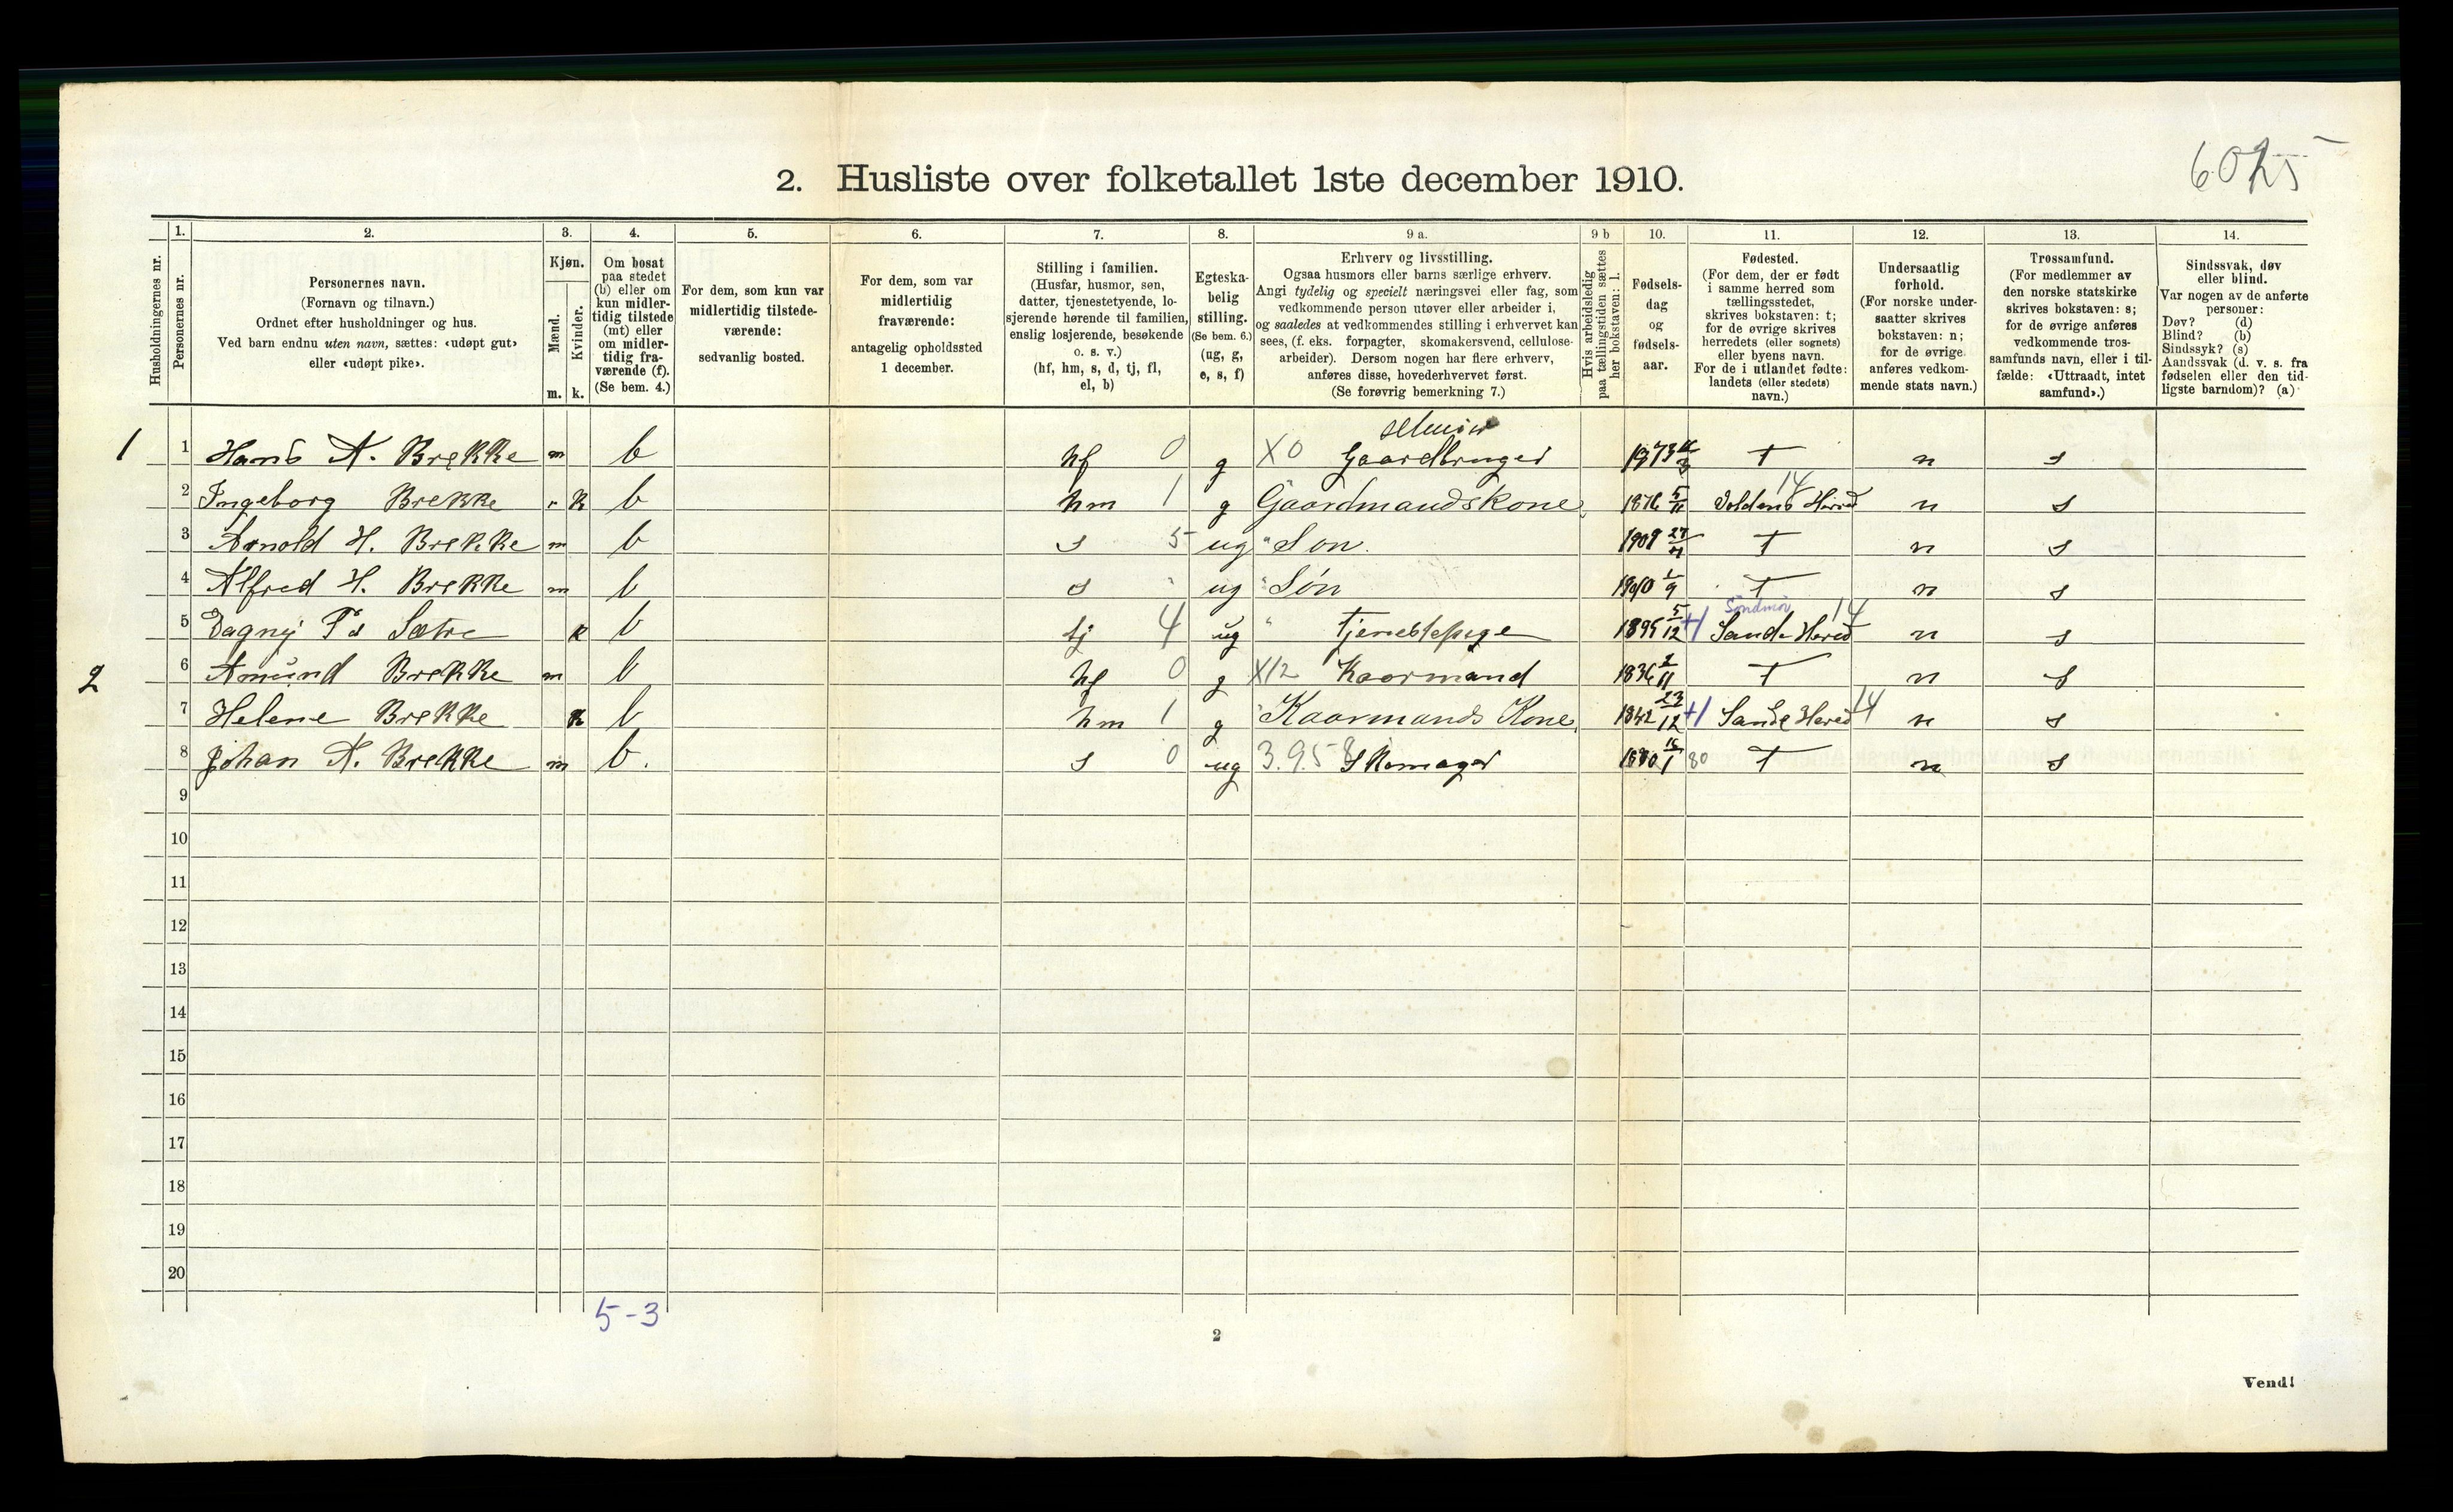 6025
2. Husliste over folketallet 1ste december 1910.
Husholdningernes nr.
1. Personernes nr.
2. Personernes navn.
(Fornavn og tilnavn.)
Ordnet efter husholdninger og hus.
Ved barn endnu uten navn, sættes: «udøpt gut»
eller «udøpt pike».
3. Kjøn.
Mænd. m.
Kvinder. k.
4. Om bosat
paa stedet
(b) eller om
kun midler-
tidig tilstede
(mt) eller
om midler-
tidig fra-
værende (f).
(Se bem. 4.)
5. For dem, som kun var
midlertidig tilstede-
værende:
sedvanlig bosted.
6. For dem, som var
midlertidig
fraværende:
antagelig opholdssted
1 december.
7. Stilling i familien.
(Husfar, husmor, søn,
datter, tjenestetyende, lo-
sjerende hørende til familien,
enslig losjerende, besøkende
o. s. v.)
(hf, hm, s, d, tj, fl,
el, b)
8. Egteska-
belig
stilling.
(Se bem. 6.)
(ug, g,
e, s, f)
9 a. Erhverv og livsstilling.
Ogsaa husmors eller barns særlige erhverv.
Angi tydelig og specielt næringsvei eller fag, som
vedkommende person utøver eller arbeider i,
og saaledes at vedkommendes stilling i erhvervet kan
sees, (f. eks. forpagter, skomakersvend, cellulose-
arbeider). Dersom nogen har flere erhverv,
anføres disse, hovederhvervet først.
(Se forøvrig bemerkning 7.)
9 b Hvis arbeidsledig
paa tællingstiden sættes
her bokstaven: l.
10. Fødsels-
dag
og
fødsels-
aar.
11. Fødested.
(For dem, der er født
i samme herred som
tællingsstedet,
skrives bokstaven: t;
for de øvrige skrives
herredets (eller sognets)
eller byens navn.
For de i utlandet fødte:
landets (eller stedets)
navn.)
12. Undersaatlig
forhold.
(For norske under-
saatter skrives
bokstaven: n;
for de øvrige
anføres vedkom-
mende stats navn.)
13. Trossamfund.
(For medlemmer av
den norske statskirke
skrives bokstaven: s;
for de øvrige anføres
vedkommende tros-
samfunds navn, eller i til-
fælde: «Uttraadt, intet
samfund».)
14. Sindssvak, døv
eller blind.
Var nogen av de anførte
personer:
Døv? (d)
Blind? (b)
Sindssyk? (s)
Aandssvak (d. v. s. fra
fødselen eller den tid-
ligste barndom)? (a)
1 1 Hans A. Brekke m b hf 0 g X0 Gaardbruger T n s
2 Ingeborg Brekke k b hm 1 g Gaardmandskone 1876 5/11 Voldens Herred 14 n s
3 Arnold H. Brekke m b s 5 ug " Søn. 1909 T n s
4 Alfred H. Brekke m b s " ug " Søn 1910 1/9 T n s
5 Dagny Sætre k b tj 4 ug " Tjenestepige 1895 5/12 +1 Søndmør Sande Herred 14 n s
2 6 Amund Brekke m b hf 0 g X12 Kaarmand 1836 2/11 T n s
7 Helene Brekke k b hm 1 g " Kaarmands Kone. 1842 23/12 +1 Sande Herred 14 n s
8 Johan A. Brekke m b. s 0 ug 3.9.58 Skomager 16/1 80 T n s
9
10
11
12
13
14
15
16
17
18
19
20
5-3
2
Vend!